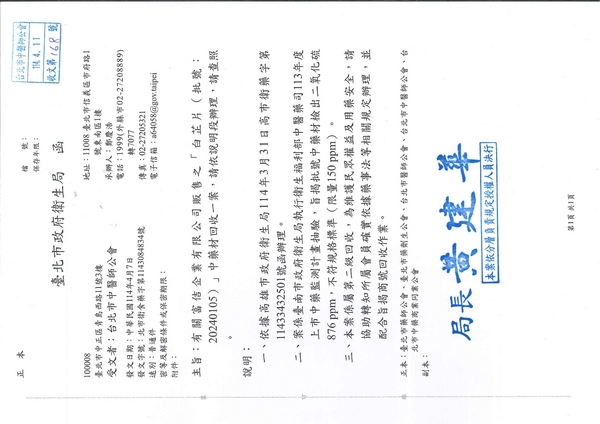 正本
檔　號：
保存年限：
台北市中醫師公會
114. 4. 11
收文第168號
臺北市政府衛生局　函
地址：11008 臺北市信義區市府路1
號東南區1樓
承辦人：鄭慶浩
電話：1999(外縣市02-27208889)
轉7077
傳真：02-27205321
電子信箱：a64058@gov.taipei
100008
臺北市中正區青島西路11號3樓
受文者：台北市中醫師公會
發文日期：中華民國114年4月7日
發文字號：北市衛食藥字第1143084834號
速別：普通件
密等及解密條件或保密期限：
附件：
主旨：有關富信企業有限公司販售之「白芷片（批號：
20240105）」中藥材回收一案，請依說明段辦理，請查照
。
說明：
一、依據高雄市政府衛生局114年3月31日高市衛藥字第
11433432501號函辦理。
二、案係臺南市政府衛生局執行衛生福利部中醫藥司113年度
上市中藥監測計畫抽驗，旨揭批號中藥材檢出二氧化硫
876 ppm，不符規格標準（限量150 ppm）。
三、本案係屬第二級回收，為維護民眾權益及用藥安全，請
協助轉知所屬會員確實依據藥事法等相關規定辦理，並
配合旨揭商號回收作業。
正本：臺北市藥師公會、臺北市藥劑生公會、台北市醫師公會、台北市中醫師公會、台
北市中藥商業同業公會
副本：
局長 黃建華
本案依分層負責規定授權人員決行
第1頁 共1頁